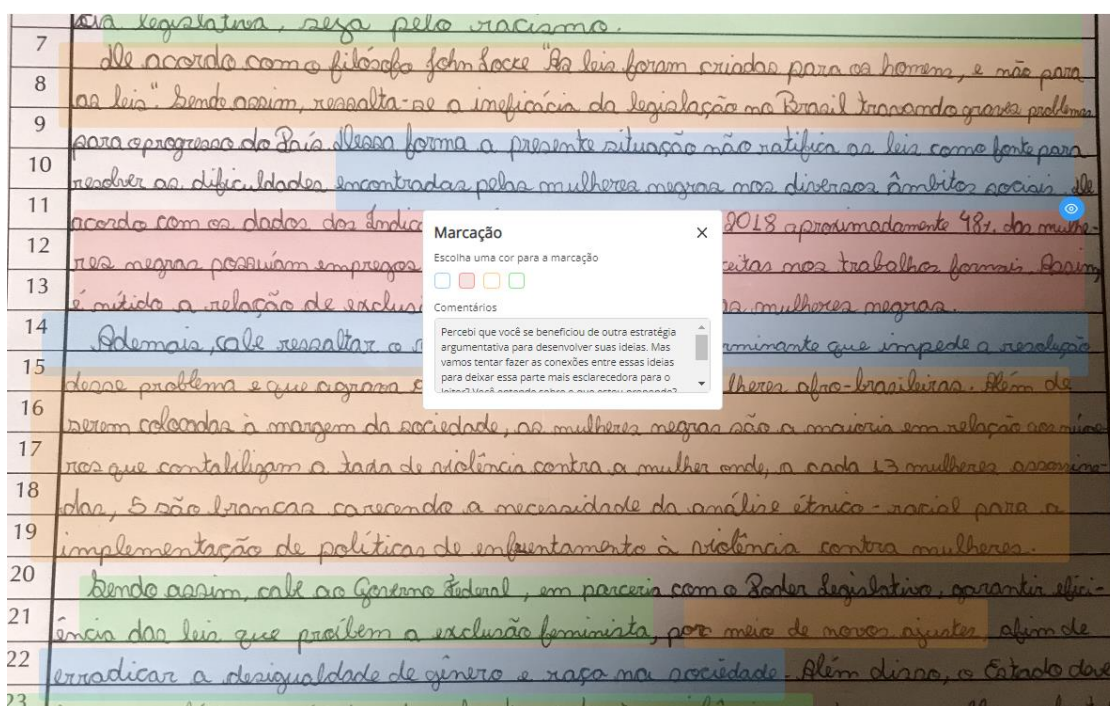 cia legislativa, seja pelo racismo.
7 De acordo com o filósofo John Locke "As leis foram criadas para os homens, e não para
8 as leis". Sendo assim, ressalta-se a ineficácia da legislação no Brasil travando graves problemas
9 para o progresso do País. Dessa forma a presente situação não ratifica as leis como fonte para
10 resolver as dificuldades encontradas pelas mulheres negras nos diversos âmbitos sociais. De
11 acordo com os dados dos Indic 2018 aproximadamente 48% das mulhe-
12 res negras possuíam empregos nos trabalhos formais. Assim,
13 é nítido a relação de exclus mulheres negras.
14 Ademais, cabe ressaltar o que impede a resolução
15 desse problema e que agrava afro-brasileiras. Além de
16 serem colocadas à margem da sociedade, as mulheres negras são a maioria em relação aos núme-
17 ros que contabilizam a taxa de violência contra a mulher onde, a cada 13 mulheres assassina-
18 das, 5 são brancas carecendo a necessidade da análise étnico-racial para a
19 implementação de políticas de enfrentamento à violência contra mulheres.
20 Sendo assim, cabe ao Governo Federal, em parceria com o Poder Legislativo, garantir efici-
21 ência das leis que proíbem a exclusão feminista, por meio de novos ajustes, afim de
22 erradicar a desigualdade de gênero e raça na sociedade. Além disso, o Estado deve
23
Marcação
Escolha uma cor para a marcação
Comentários
Percebi que você se beneficiou de outra estratégia
argumentativa para desenvolver suas ideias. Mas
vamos tentar fazer as conexões entre essas ideias
para deixar essa parte mais esclarecedora para o
leitor? Você entende sobre o que estou propondo?